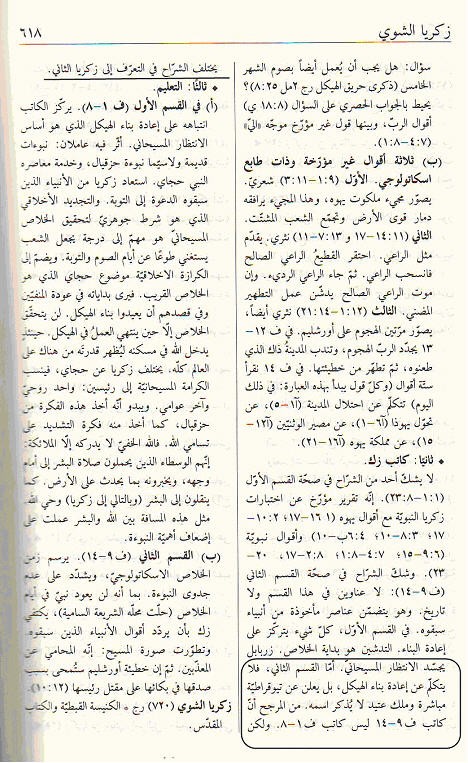 زكريا الشوي
٦١٨
سؤال: هل يجب أن يُعمل أيضاً بصوم الشهر
الخامس (ذكرى حريق الهيكل رج ٢مل ٨:٢٥)؟
يحيط بالجواب الحصري على السؤال (١٨:٨ ي)
أقوال الربّ، وبينها قول غير مؤرّخ موجّه «إليّ»
(٤:٧-٨:١).
(ب) ثلاثة أقوال غير مؤرّخة وذات طابع
اسكاتولوجي. الأوّل (١:٩-٣:١١) شعريّ.
يصوّر مجيء ملكوت يهوه، وهذا المجيء يرافقه
دمار قوى الأرض وتجمّع الشعب المشتّت.
الثاني (١٤:١١-١٧ و ٧:١٣-١١) نثري يقدّم
مثل الراعي. احتقر القطيعُ الراعي الصالح
فانسحب الراعي. ثمّ جاء الراعي الرديء. وإن
موت الراعي الصالح يدشّن عمل التطهير
المضني. الثالث (١:١٢-٢١:١٤) نثري أيضاً،
يصوّر مرّتين الهجوم على أورشليم. في ف ١٢-
١٣ يجدّد الربّ الهجوم، وتندب المدينةُ ذاك الذي
طعنوه، ثمّ تطهّر من خطيئتها. في ف ١٤ نقرأ
ستة أقوال (وكلّ قول يبدأ بهذه العبارة: في ذلك
اليوم) تتكلّم عن احتلال المدينة (آ١-٥)، عن
تحوّل يهوذا (آ٦-١١)، عن مصير الوثنيّين (آ١٢-
١٥)، عن مملكة يهوه (آ١٦-٢١).
• ثانيًا: كاتب زك.
لا يشكّ أحد من الشرّاح في صحّة القسم الأوّل
(١:١-٢٣:٨). إنّه تقرير مؤرّخ عن اختبارات
زكريا النبويّة مع أقوال يهوه (١٦:١-١٧؛ ١٠:٢-
١٧؛ ٨:٣-١٠؛ ٤:٦ب-١٠) وأقوال نبويّة
(٩:٦-١٥؛ ٤:٧-١:٨؛ ٢:٨-١٧، ٢٠-
٢٣). وشكّ الشرّاح في صحّة القسم الثاني
(ف ٩-١٤): لا عناوين في هذا القسم ولا
تاريخ. وهو يتضمّن عناصر مأخوذة من أنبياء
سبقوه. في القسم الأوّل، كلّ شيء يتركّز على
إعادة البناء. التدشين هو بداية الخلاص. زربابل
يجسّد الانتظار المسيحانيّ. أمّا القسم الثاني، فلا
يتكلّم عن إعادة بناء الهيكل، بل يعلن عن تيوقراطيّة
مباشرة وملك عتيد لا يُذكر اسمه. من المرجح أنّ
كاتب ف ٩-١٤ ليس كاتب ف ١-٨. ولكن
يختلف الشرّاح في التعرّف إلى زكريا الثاني.
• ثالثًا: التعليم.
(أ) في القسم الأول (ف ١-٨). يركّز الكاتب
انتباهه على إعادة بناء الهيكل الذي هو أساس
الانتظار المسيحاني. أثّر فيه عاملان: نبوءات
قديمة ولاسيّما نبوءة حزقيال، وخدمة معاصره
النبي حجاي. استعاد زكريا من الأنبياء الذين
سبقوه الدعوة إلى التوبة. والتجديد الأخلاقي
الذي هو شرط جوهريّ لتحقيق الخلاص
المسيحانيّ هو مهمّ إلى درجة يجعل الشعب
يستغني طوعًا عن أيام الصوم والتوبة. ويضمّ إلى
الكرازة الاخلاقيّة موضوع حجاي الذي هو
الخلاص القريب. فيرى بداياته في عودة المنفيّين
وفي قصدهم أن يعيدوا بناء الهيكل. لن يتحقّق
الخلاص إلّا حين ينتهي العمل في الهيكل. حينئذ
يدخل الله في مسكنه ليُظهر قدرته من هناك على
العالم كلّه. يختلف زكريا عن حجاي، فينسب
الكرامة المسيحانيّة إلى رئيسين: واحد روحيّ
وآخر عوامي. ويبدو أنّه أخذ هذه الفكرة من
حزقيال، كما أخذ منه فكرة التشديد على
تسامي الله. فالله الخفيّ لا يدركه إلّا الملائكة:
إنّهم الوسطاء الذين يحملون صلاة البشر إلى أمام
وجهه، ويخبرونه بما يحدث على الأرض. كما
ينقلون إلى البشر (وبالتالي إلى زكريا) وحي الله.
مثل هذه المسافة بين الله والبشر عملت على
إضعاف أهميّة النبوءة.
(ب) القسم الثاني (ف ٩-١٤). يرسم زمن
الخلاص الاسكاتولوجيّ، ويشدّد على عدم
جدوى النبوءة. بما أنه لن يعود نبيّ في أيام
الخلاص (حلّت محلّه الشريعة السامية)، يكتفي
زك بأن يردّد أقوال الأنبياء الذين سبقوه.
وتطوّرت صورة المسيح: إنّه المحامي عن
المعذّبين. ثمّ إن خطيئة أورشليم ستُمحى بسبب
صدقها في بكائها على مقتل رئيسها (١٠:١٢).
زكريا الشوي (٧٢٠) رج * الكنيسة القبطيّة والكتاب
المقدّس.